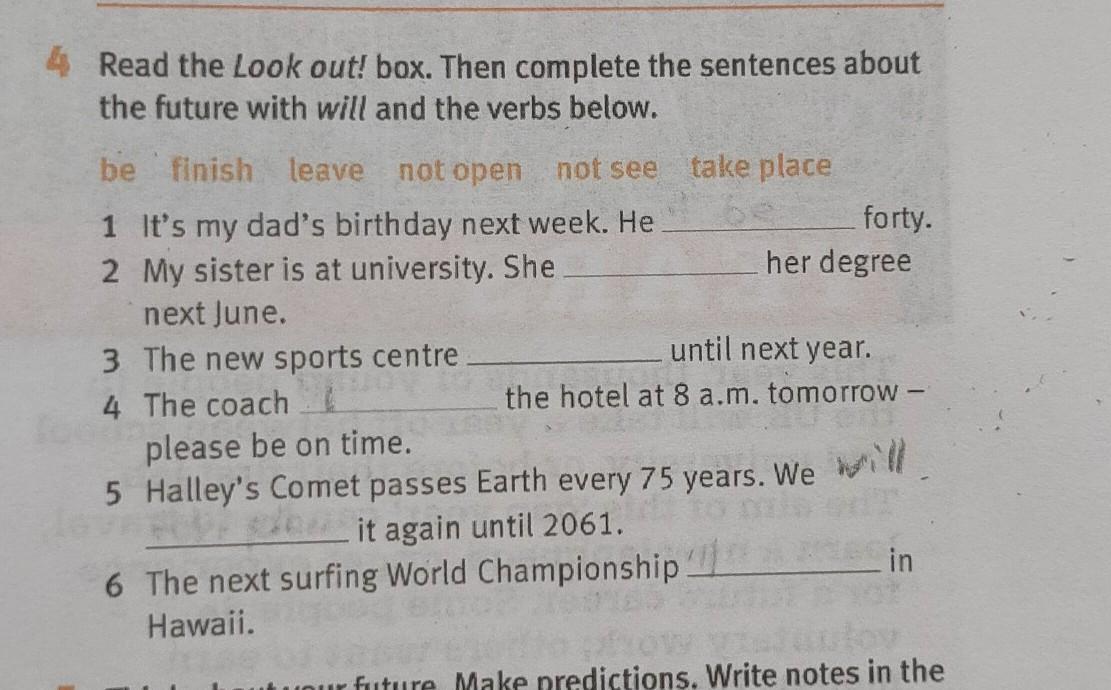 4 Read the Look out! box. Then complete the sentences about
the future with will and the verbs below.
be finish leave not open not see take place
1 It's my dad's birthday next week. He 'll be forty.
2 My sister is at university. She ____________ her degree
next June.
3 The new sports centre ____________ until next year.
4 The coach ____________ the hotel at 8 a.m. tomorrow –
please be on time.
5 Halley's Comet passes Earth every 75 years. We will
____________ it again until 2061.
6 The next surfing World Championship 'll ____________ in
Hawaii.
your future. Make predictions. Write notes in the